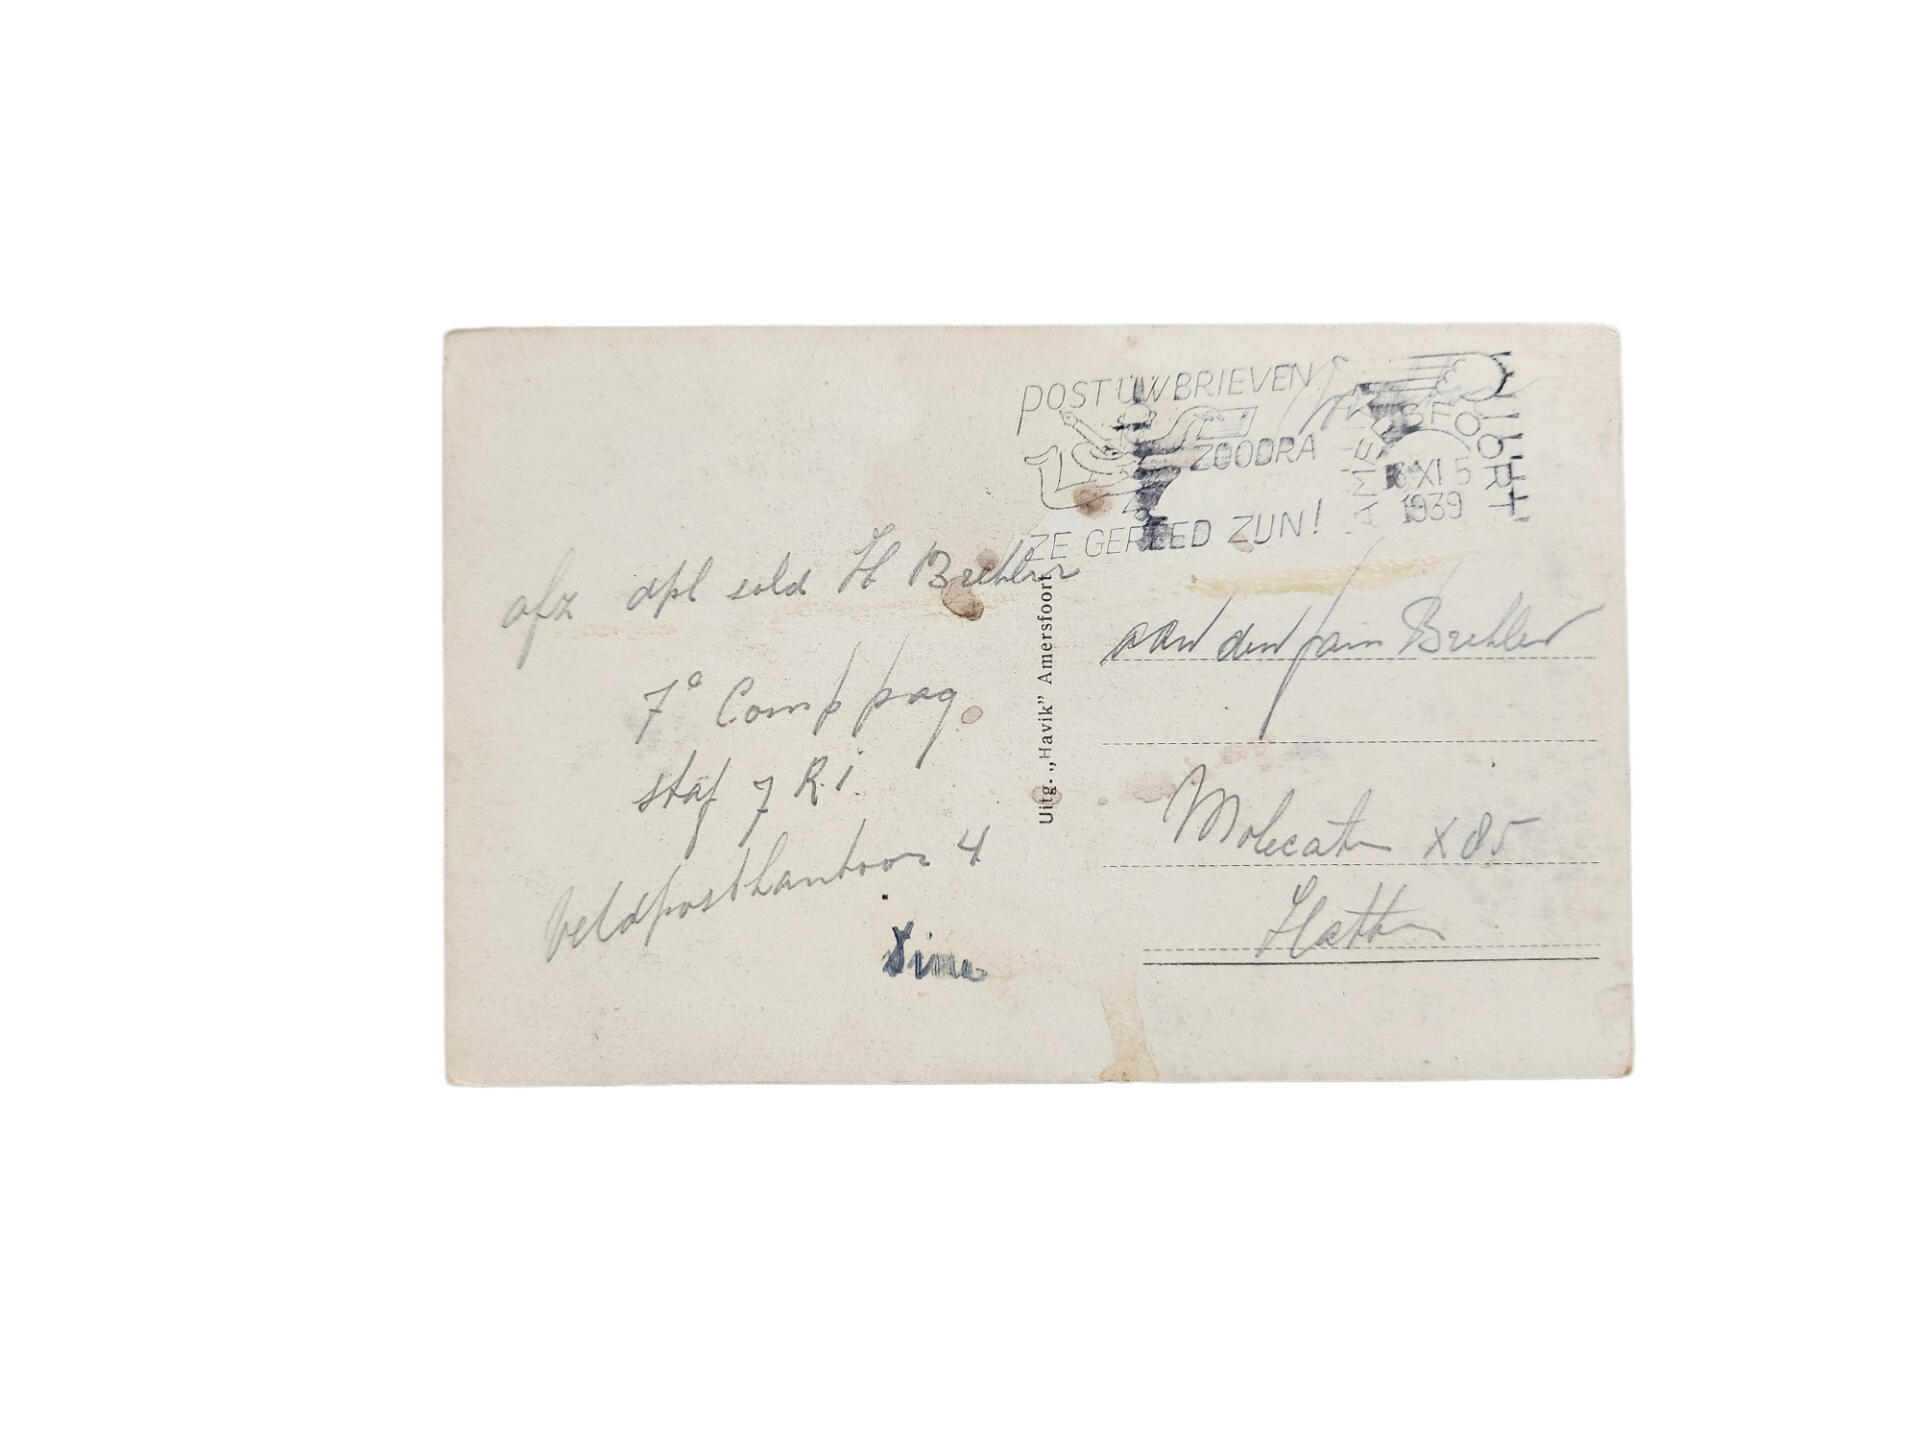 POST UW BRIEVEN
ZOODRA
ZE GEREED ZIJN!
AMERSFOORT
XI 5
1939
afz dpl sold H Brehler
7e Comp pag
staf 7 R.I.
Veldpostkantoor 4
Uitg. „Havik” Amersfoort
aan den fam Brehler
Molecaten X 85
Hattem